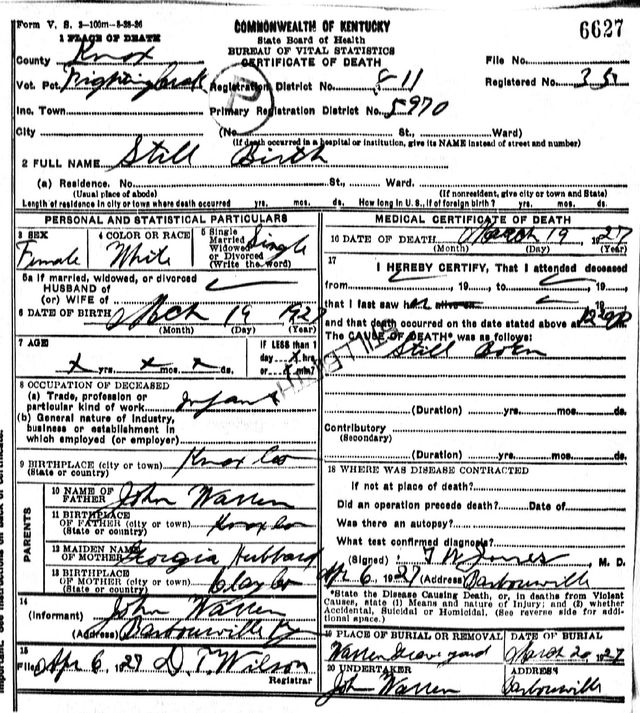 Form V. S. 3-100m-8-28-26
COMMONWEALTH OF KENTUCKY
State Board of Health
BUREAU OF VITAL STATISTICS
CERTIFICATE OF DEATH
6627
1 PLACE OF DEATH
County Knox
File No.
Vot. Pct. Registration District No. 811
Registered No.
Inc. Town Primary Registration District No. 5970
City (No. St., Ward)
(If death occurred in a hospital or institution, give its NAME instead of street and number)
2 FULL NAME Still Birth
(a) Residence. No. St., Ward.
(Usual place of abode) (If nonresident, give city or town and State)
Length of residence in city or town where death occurred yrs. mos. ds. How long in U. S., if of foreign birth? yrs. mos. ds.
PERSONAL AND STATISTICAL PARTICULARS
3 SEX
Female
4 COLOR OR RACE
White
5 Single
Married
Widowed
or Divorced
(Write the word)
Single
5a If married, widowed, or divorced
HUSBAND of
(or) WIFE of
6 DATE OF BIRTH March 19 1927
(Month) (Day) (Year)
7 AGE
x yrs. x mos. x ds.
IF LESS than 1
day x hrs.
or x min?
STILLBIRTH
8 OCCUPATION OF DECEASED
(a) Trade, profession or
particular kind of work Infant
(b) General nature of industry,
business or establishment in
which employed (or employer)
9 BIRTHPLACE (city or town) Knox Co
(State or country)
PARENTS
10 NAME OF
FATHER John Warren
11 BIRTHPLACE
OF FATHER (city or town) Knox Co
(State or country)
12 MAIDEN NAME
OF MOTHER Georgia Hubbard
13 BIRTHPLACE
OF MOTHER (city or town) Clay Co
(State or country)
14
(Informant) John Warren
(Address) Barbourville Ky
15
Filed Apr 6, 1927 D. T. Wilson
Registrar
MEDICAL CERTIFICATE OF DEATH
16 DATE OF DEATH March 19 1927
(Month) (Day) (Year)
17
I HEREBY CERTIFY, That I attended deceased
from , 19 , to , 19
that I last saw h alive on , 19
and that death occurred on the date stated above at
The CAUSE OF DEATH* was as follows:
Still Born
(Duration) yrs. mos. ds.
Contributory
(Secondary)
(Duration) yrs. mos. ds.
18 WHERE WAS DISEASE CONTRACTED
If not at place of death?
Did an operation precede death? Date of
Was there an autopsy?
What test confirmed diagnosis?
(Signed) T W Jones, M. D.
Apr 6, 1927 (Address) Barbourville
*State the Disease Causing Death, or, in deaths from Violent
Causes, state (1) Means and nature of Injury; and (2) whether
Accidental, Suicidal or Homicidal. (See reverse side for addi-
tional space.)
19 PLACE OF BURIAL OR REMOVAL
Warren Grave yard
DATE OF BURIAL
March 20 1927
20 UNDERTAKER
John Warren
ADDRESS
Barbourville